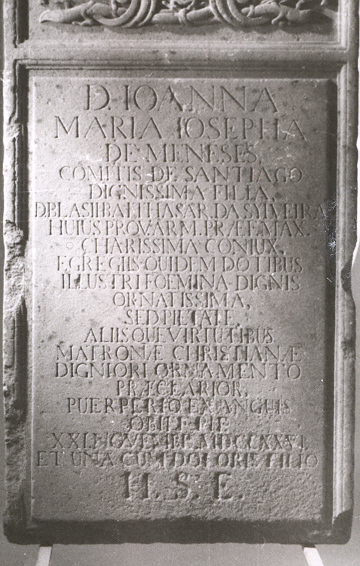 D. IOANNA
MARIA IOSEPHA
DE MENESES,
COMITIS DE SANTIAGO
DIGNISSIMA FILIA,
D. BLASII BALTHASAR, DA SYLVEIRA
HUIUS PROV. ARM. PRÆF. MAX.
CHARISSIMA CONIUX,
EGREGIIS QUIDEM DOTIBUS
ILLUSTRI FOEMINA DIGNIS
ORNATISSIMA,
SED PIETATE
ALIISQUE VIRTUTIBUS
MATRONÆ CHRISTIANÆ
DIGNIORI ORNAMENTO
PRÆCLARIOR,
PUERPERIO EXANGUIS
OBIIT DIE
ET UNA CUM DOLORIS FILIO
H. S. E.